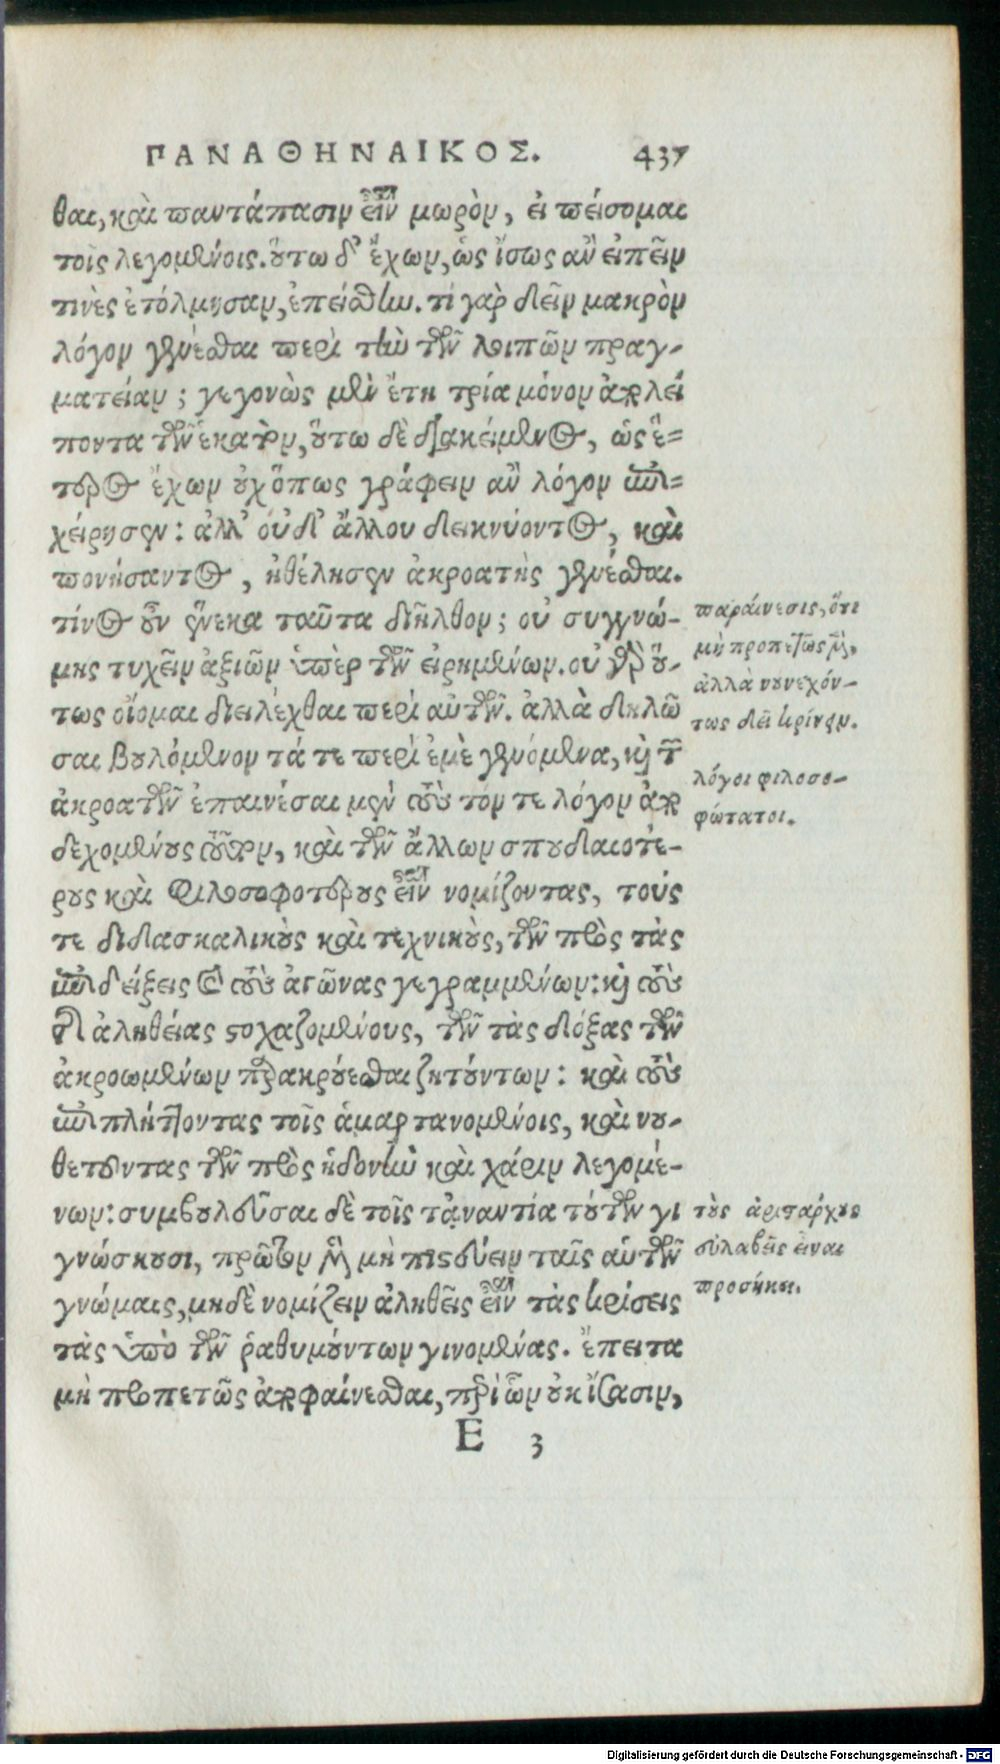 ΠΑΝΑΘΗΝΑΙΚΟΣ. 437
θαι, καὶ παντάπασιν εἶναι μωρὸν, εἰ πείσομαι
τοῖς λεγομένοις. οὕτω δ᾽ ἔχων, ὡς ἴσως ἂν εἰπεῖν
τινὲς ἐτόλμησαν, ἐπείσθην. τί γὰρ δεῖν μακρὸν
λόγον γενέσθαι περὶ τὴν τῶν λοιπῶν πραγ-
ματείαν; γεγονὼς μὲν ἔτη τρία μόνον ἀπολεί
ποντα τῶν ἑκατὸν, οὕτω δὲ διακείμενος, ὡς ἕ=
τερος ἔχων οὐχ ὅπως γράφειν ἂν λόγον ἐπι=
χείρησεν: ἀλλ᾽ οὐδ᾽ ἄλλου δεικνύοντος, καὶ
πονήσαντος, ἠθέλησεν ἀκροατὴς γενέσθαι.
τίνος οὖν ἕνεκα ταῦτα διῆλθον; οὐ συγγνώ-
μης τυχεῖν ἀξιῶν ὑπὲρ τῶν εἰρημένων. οὐ γὰρ οὕ-
τως οἴομαι διειλέχθαι περὶ αὐτῶν. ἀλλὰ δηλῶ
σαι βουλόμενον τά τε περὶ ἐμὲ γενόμενα, καὶ τῶν
ἀκροατῶν ἐπαινέσαι μὲν τοὺς τόν τε λόγον ἀπο
δεχομένους τοῦτον, καὶ τῶν ἄλλων σπουδαιοτέ-
ρους καὶ φιλοσοφοτέρους εἶναι νομίζοντας, τούς
τε διδασκαλικοὺς καὶ τεχνικοὺς, τῶν πρὸς τὰς
ἐπιδείξεις καὶ τοὺς ἀγῶνας γεγραμμένων: καὶ τοὺς
τῆς ἀληθείας στοχαζομένους, τῶν τὰς δόξας τῶν
ἀκροωμένων παρακρούεσθαι ζητούντων: καὶ τοὺς
ἐπιπλήττοντας τοῖς ἁμαρτανομένοις, καὶ νου-
θετοῦντας τῶν πρὸς ἡδονὴν καὶ χάριν λεγομέ-
νων: συμβουλεῦσαι δὲ τοῖς τἀναντία τούτων γι
γνώσκουσι, πρῶτον μὲν μὴ πιστεύειν ταῖς αὑτῶν
γνώμαις, μηδὲ νομίζειν ἀληθεῖς εἶναι τὰς κρίσεις
τὰς ὑπὸ τῶν ῥαθυμούντων γινομένας. ἔπειτα
μὴ προπετῶς ἀποφαίνεσθαι, περὶ ὧν οὐκ ἴσασιν,
E 3
παραίνεσις, ὅτι
μὴ προπετῶς
ἀλλὰ νουνεχόν-
τως δεῖ κρίνειν.
λόγοι φιλοσο-
φώτατοι.
τοὺς ἀριστάρχους
εὐλαβεῖς εἶναι
προσήκει.
Digitalisierung gefördert durch die Deutsche Forschungsgemeinschaft - DFG